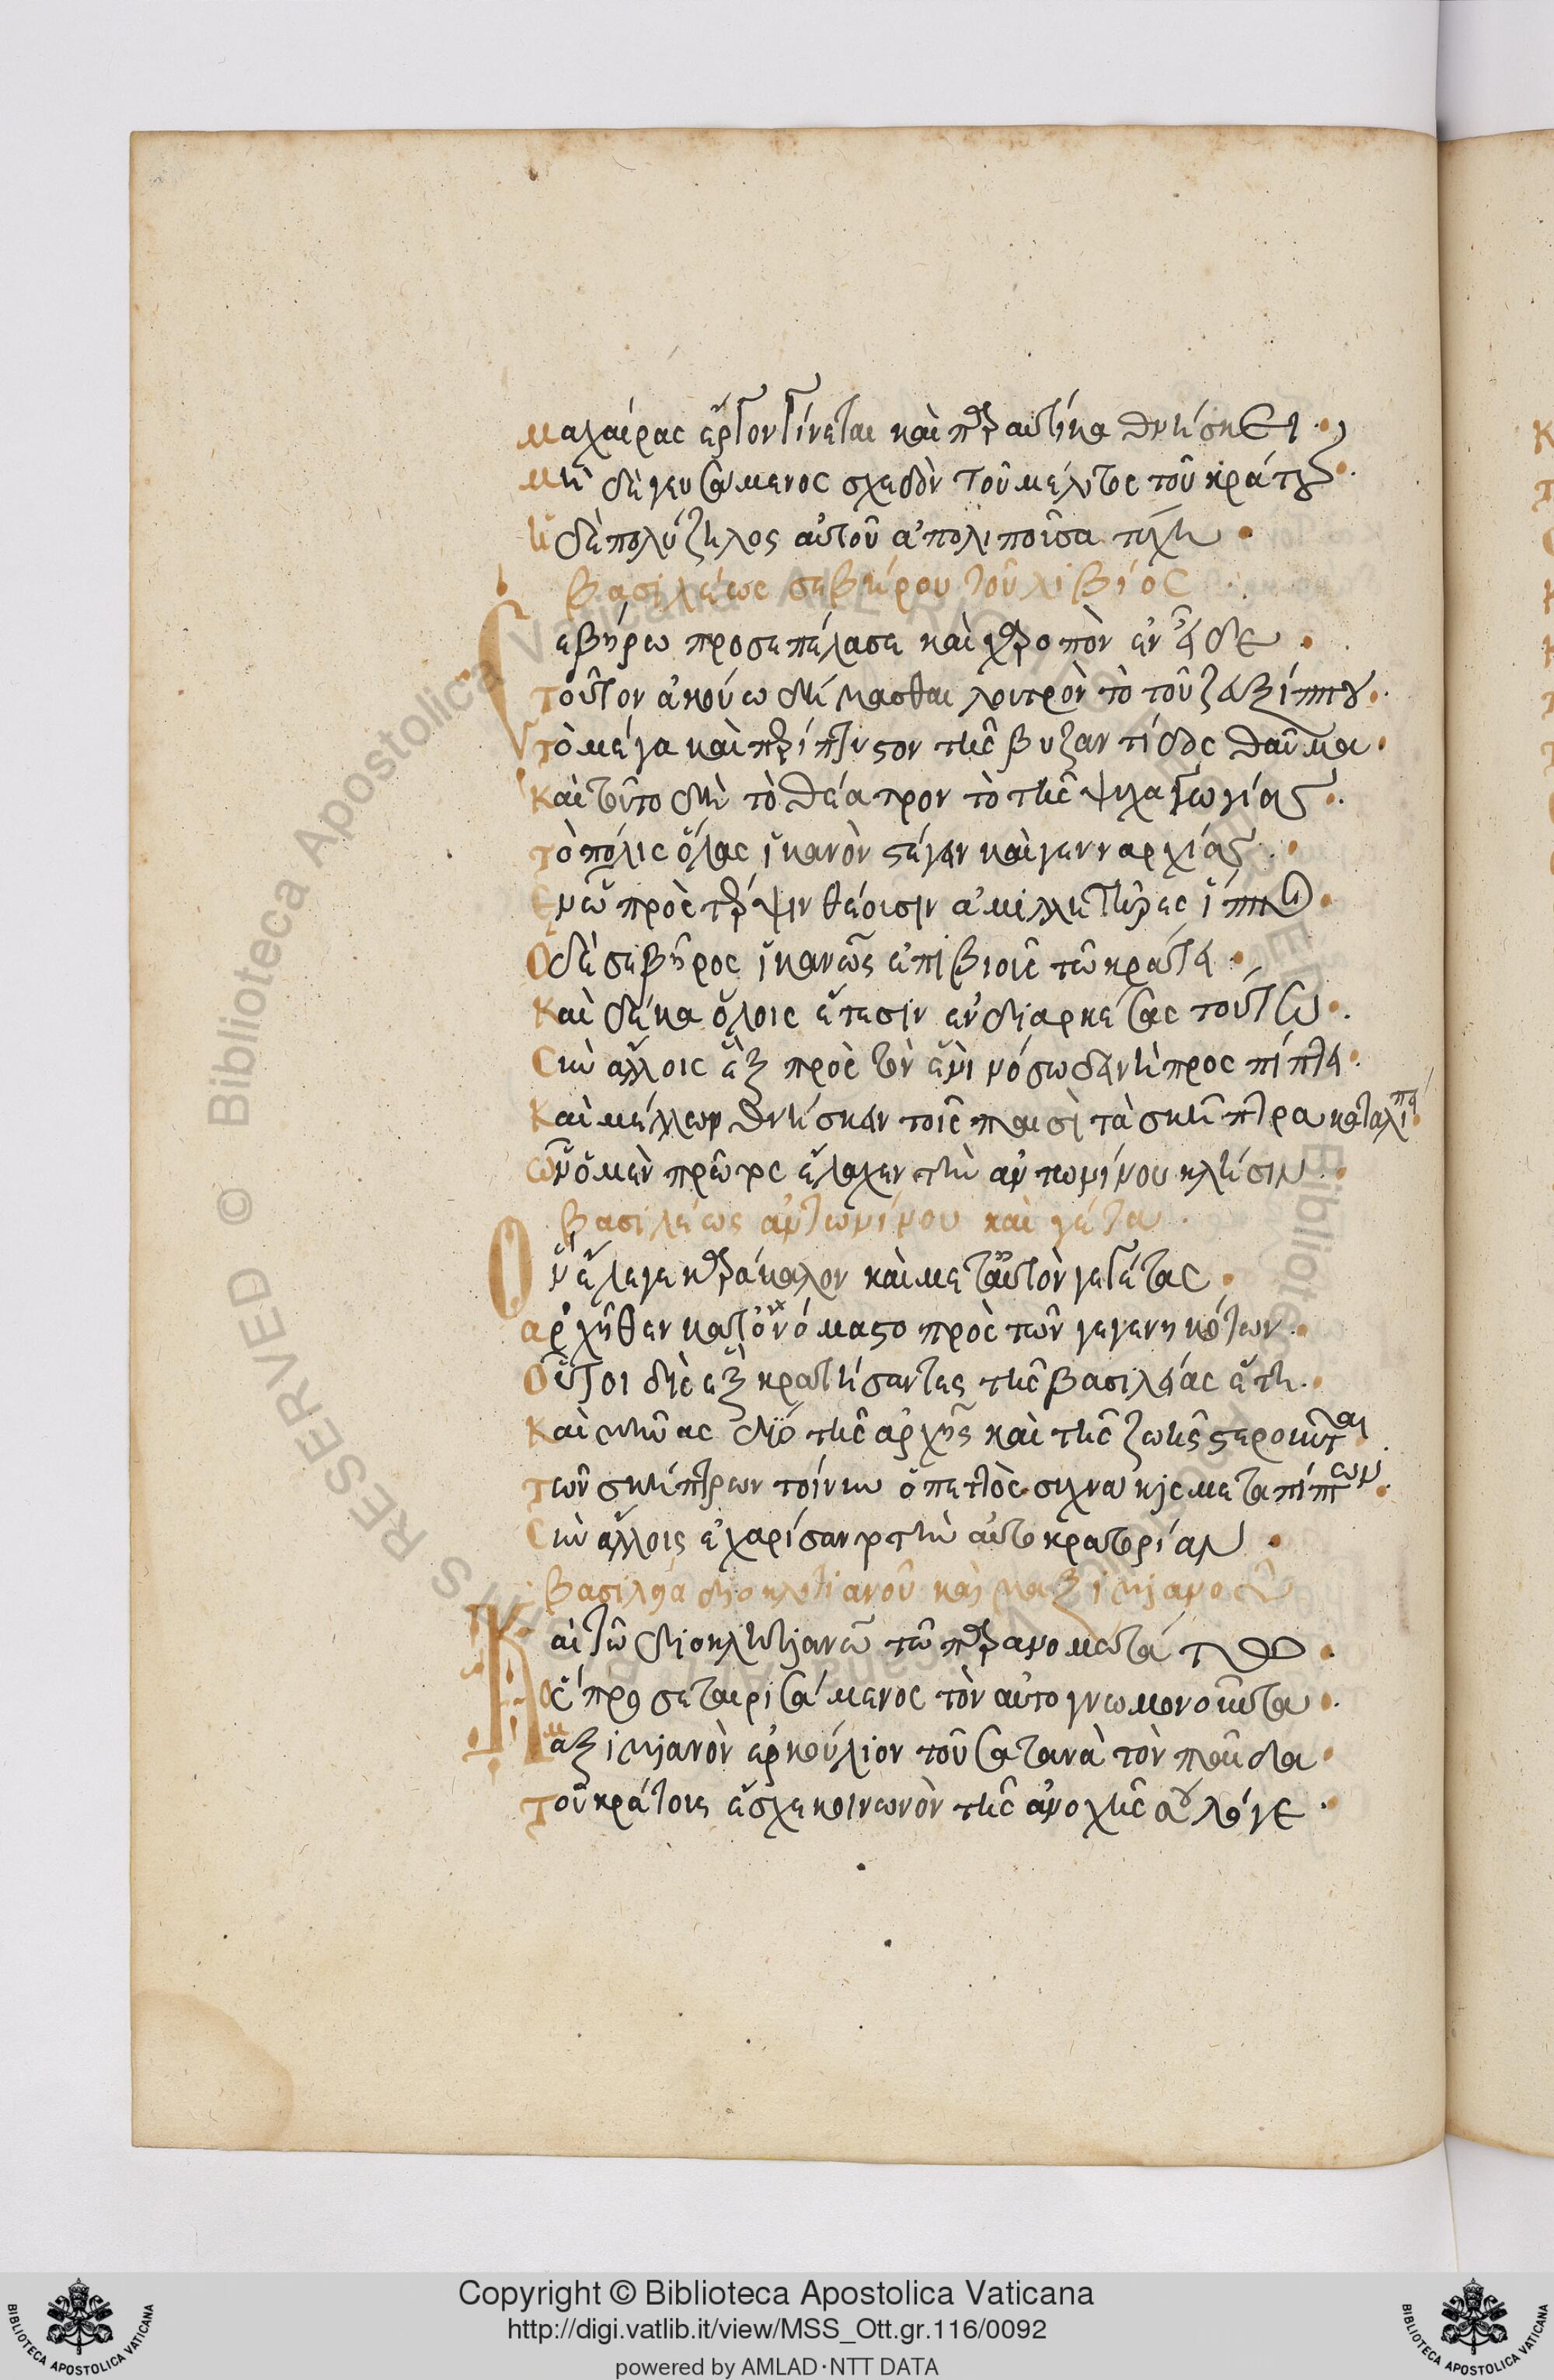 μαχαίρας ἔργον γίνεται καὶ παραυτίκα θνήσκει
μὴ δὲ γευσάμενος σχεδὸν τοῦ μέλιτος τοῦ κράτους
ἡ δὲ πολύζηλος αὐτοῦ ἀπολιποῦσα τύχη
βασιλέως σεβήρου τοῦ λιβίος
Σεβήρω προσεπέλασε καὶ
τοῦτον ἀκούω δείμασθαι λουτρὸν τὸ τοῦ ζευξίππου
τὸ μέγα καὶ περίπυστον τῆς βυζαντίδος θαῦμα
καὶ τοῦτο δὴ τὸ θέατρον τὸ τῆς ψυχαγωγίας
τὸ πόλις ὅλας ἱκανὸν στέγειν καὶ γενναρχίας
ἐν ᾧ πρὸς τέρψιν θέουσιν ἁμιλλητῆρες ἵπποι
Ὁ δὲ σεβῆρος ἱκανῶς ἐπιβιοὺς τῶ κράτει
καὶ δέκα ὅλοις ἔτεσιν ἐνδιαρκέσας τούτω
σὺν ἄλλοις ἓξ πρὸς τὸν ἑνὶ νόσω δεινῆ προσπίπτει
καὶ μέλλων θνήσκειν τοῖς παισὶ τὰ σκῆπτρα καταλιπεῖ
ὧν ὁ μὲν πρῶτος ἔλαχεν τὴν ἀντωνίνου κλῆσιν
βασιλέως ἀντωνίνου καὶ γέτα
Ὃν ἔλεγε καράκαλον καὶ μετ' αὐτὸν γε γέτας
ἀρχῆθεν κατονόμαστο πρὸς τῶν γεγεννηκότων
Οὗτοι δὶς ἓξ κρατήσαντες τῆς βασιλείας ἔτη
καὶ μῆνας δύο τῆς ἀρχῆς καὶ τῆς ζωῆς στεροῦνται
τῶν σκήπτρων τοίνυν ὁ πεττὸς συχνάκις μεταπίπτων
σὺν ἄλλοις ἐχαρίσαντο τὴν αὐτοκρατορίαν
βασιλεία διοκλητιανοῦ καὶ μαξιμιανοῦ
Καὶ τῶ διοκλητιανῶ τῶ παρανομωτάτω
ὃς προσεταιρισάμενος τὸν αὐτογνωμονοῦντα
μαξιμιανὸν ἑρκούλιον τοῦ σατανὰ τὸν παῖδα
τοῦ κράτους ἔσχε κοινωνὸν τῆς ἀνοχῆς σου λόγε
Copyright © Biblioteca Apostolica Vaticana
http://digi.vatlib.it/view/MSS_Ott.gr.116/0092
powered by AMLAD·NTT DATA